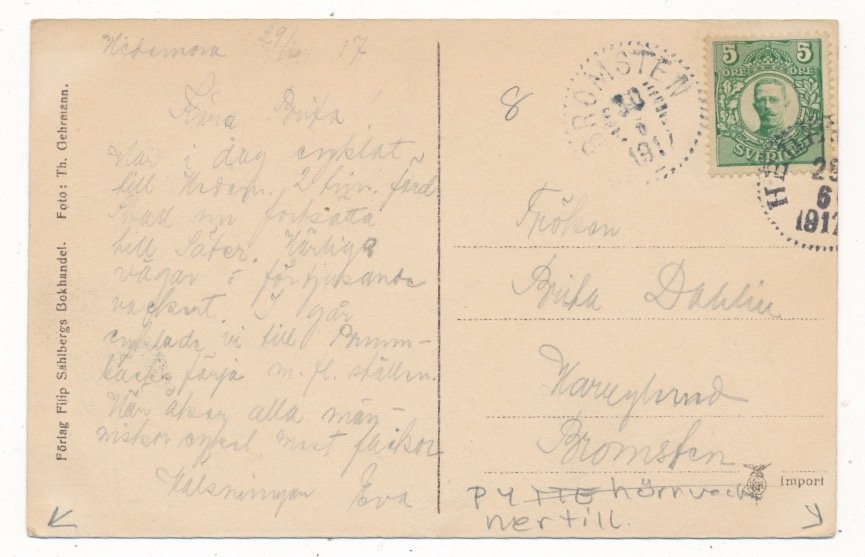 Hedemora 29/6 17
Kära Brita
Har i dag cyklat
till Hedem. 2 tim. färd
Skall nu fortsätta
till Säter. Härliga
vägar o förtjusande
vackert. I går
cyklade vi till Brunn-
bäcks färja m. fl. ställen.
Här åker alla män-
niskor cykel, mest flickor
Hälsningar Eva
Förlag Filip Sahlbergs Bokhandel. Foto: Th. Gehrmann.
8
BROMSTEN
30
6
1917
5 5
ÖRE ÖRE
SVERIGE
29
6
1917
Fröken
Brita Dahlin
Bromsten
Import
hörnveck
ner till.